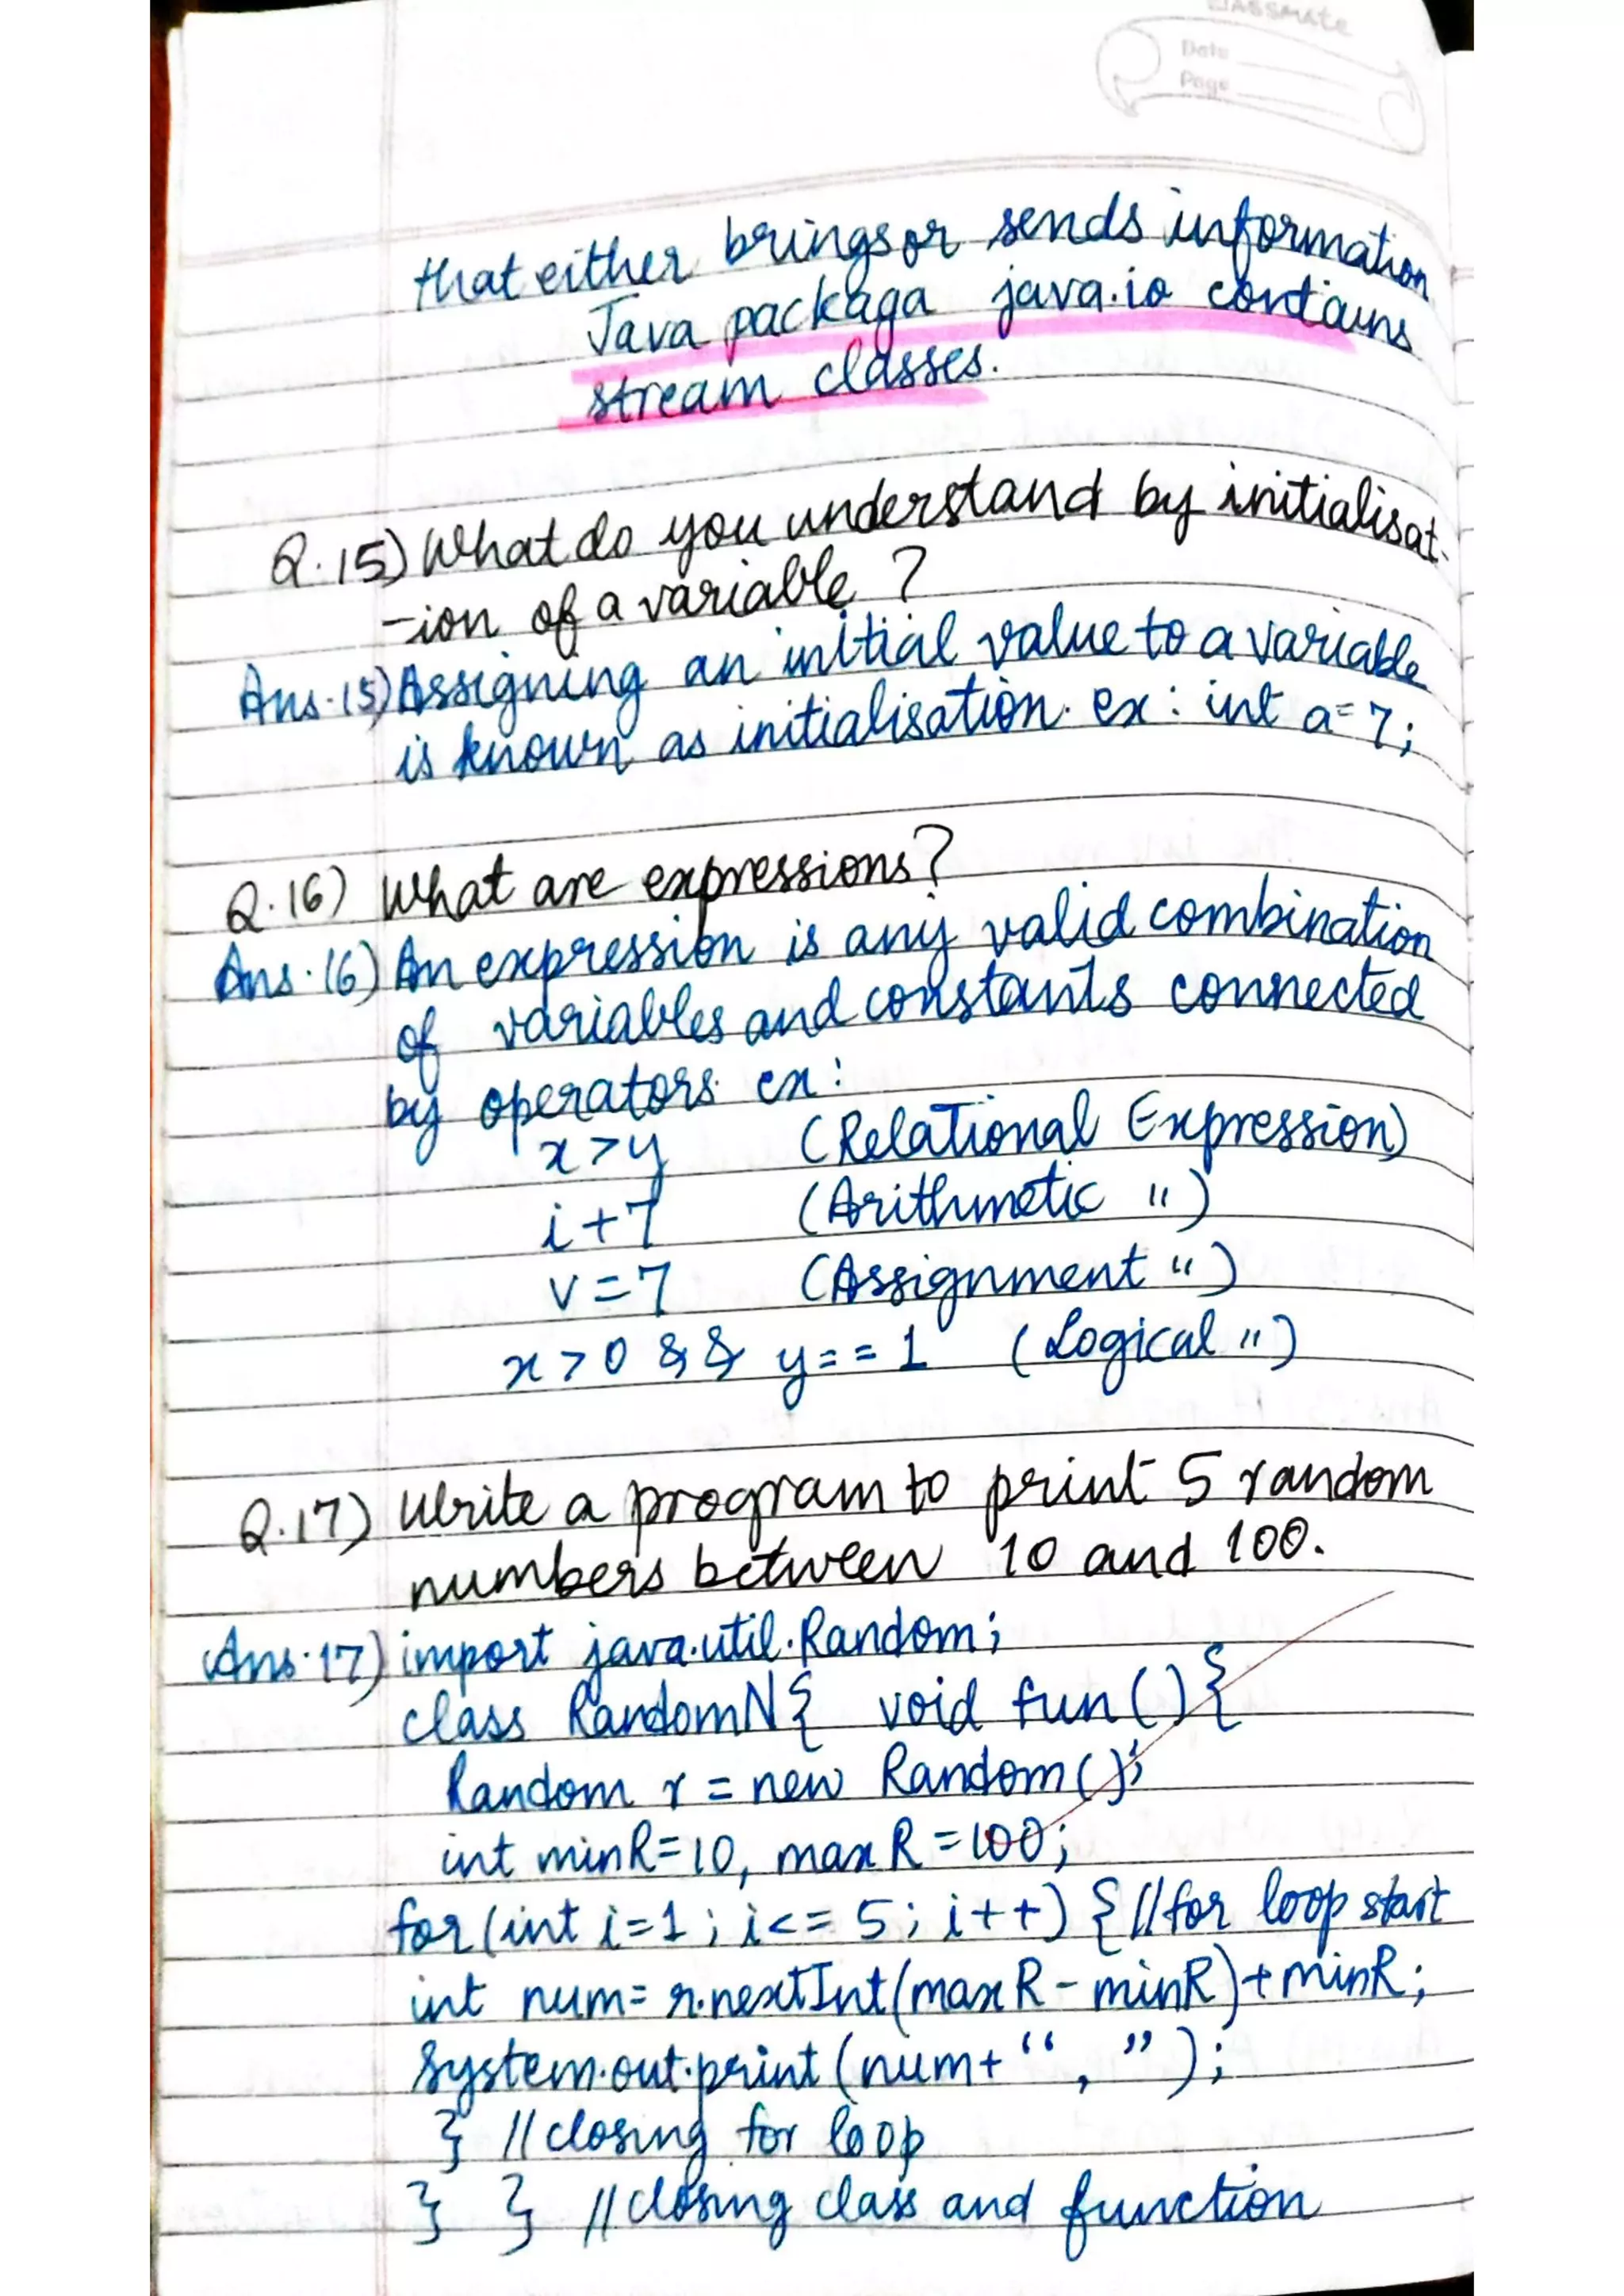 classmate
Date
Page
that either brings or sends information
Java packaga java.io contains
stream classes.
Q.15) What do you understand by initialisat-
-ion of a variable ?
Ans.15) Assigning an initial value to a variable
is known as initialisation. ex: int a=7;
Q.16) What are expressions?
Ans.16) An expression is any valid combination
of variables and constants connected
by operators. ex:
x>y (Relational Expression)
i+7 (Arithmetic ")
v=7 (Assignment ")
x>0 && y==1 (Logical ")
Q.17) Write a program to print 5 random
numbers between 10 and 100.
Ans.17) import java.util.Random;
class RandomN{ void fun(){
Random r = new Random();
int minR=10, maxR=100;
for(int i=1; i<=5; i++) { //for loop start
int num= r.nextInt(maxR-minR)+minR;
System.out.print(num+ “, ”);
} //closing for loop
} } //closing class and function